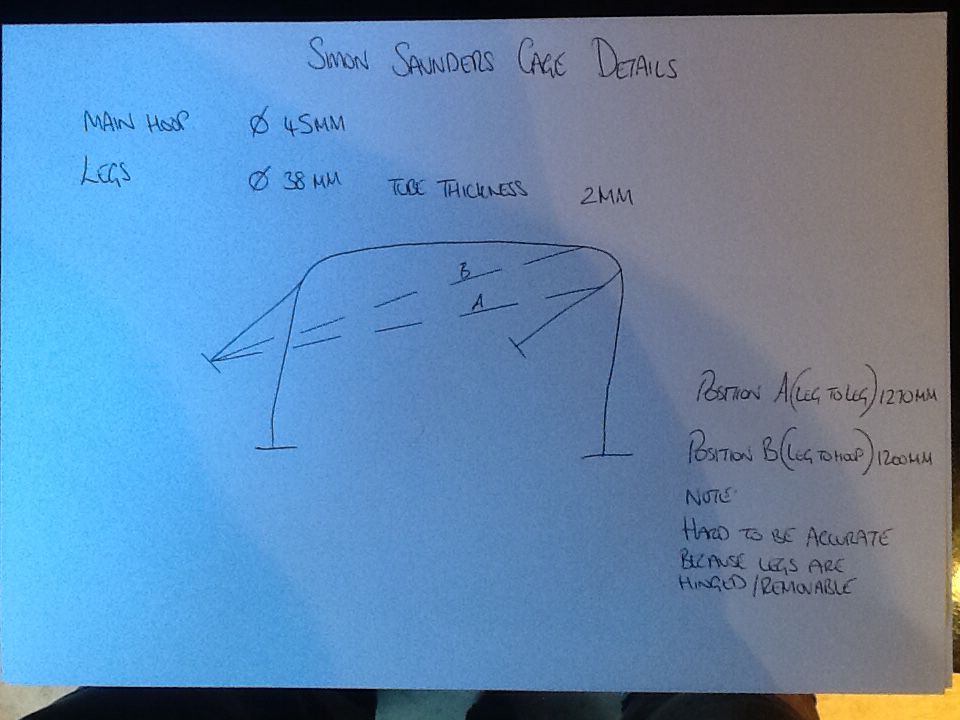 SIMON SAUNDERS CAGE DETAILS
MAIN HOOP Ø 45MM
LEGS Ø 38MM TUBE THICKNESS 2MM
B
A
POSITION A (LEG TO LEG) 1270MM
POSITION B (LEG TO HOOP) 1200MM
NOTE
HARD TO BE ACCURATE
BECAUSE LEGS ARE
HINGED/REMOVABLE